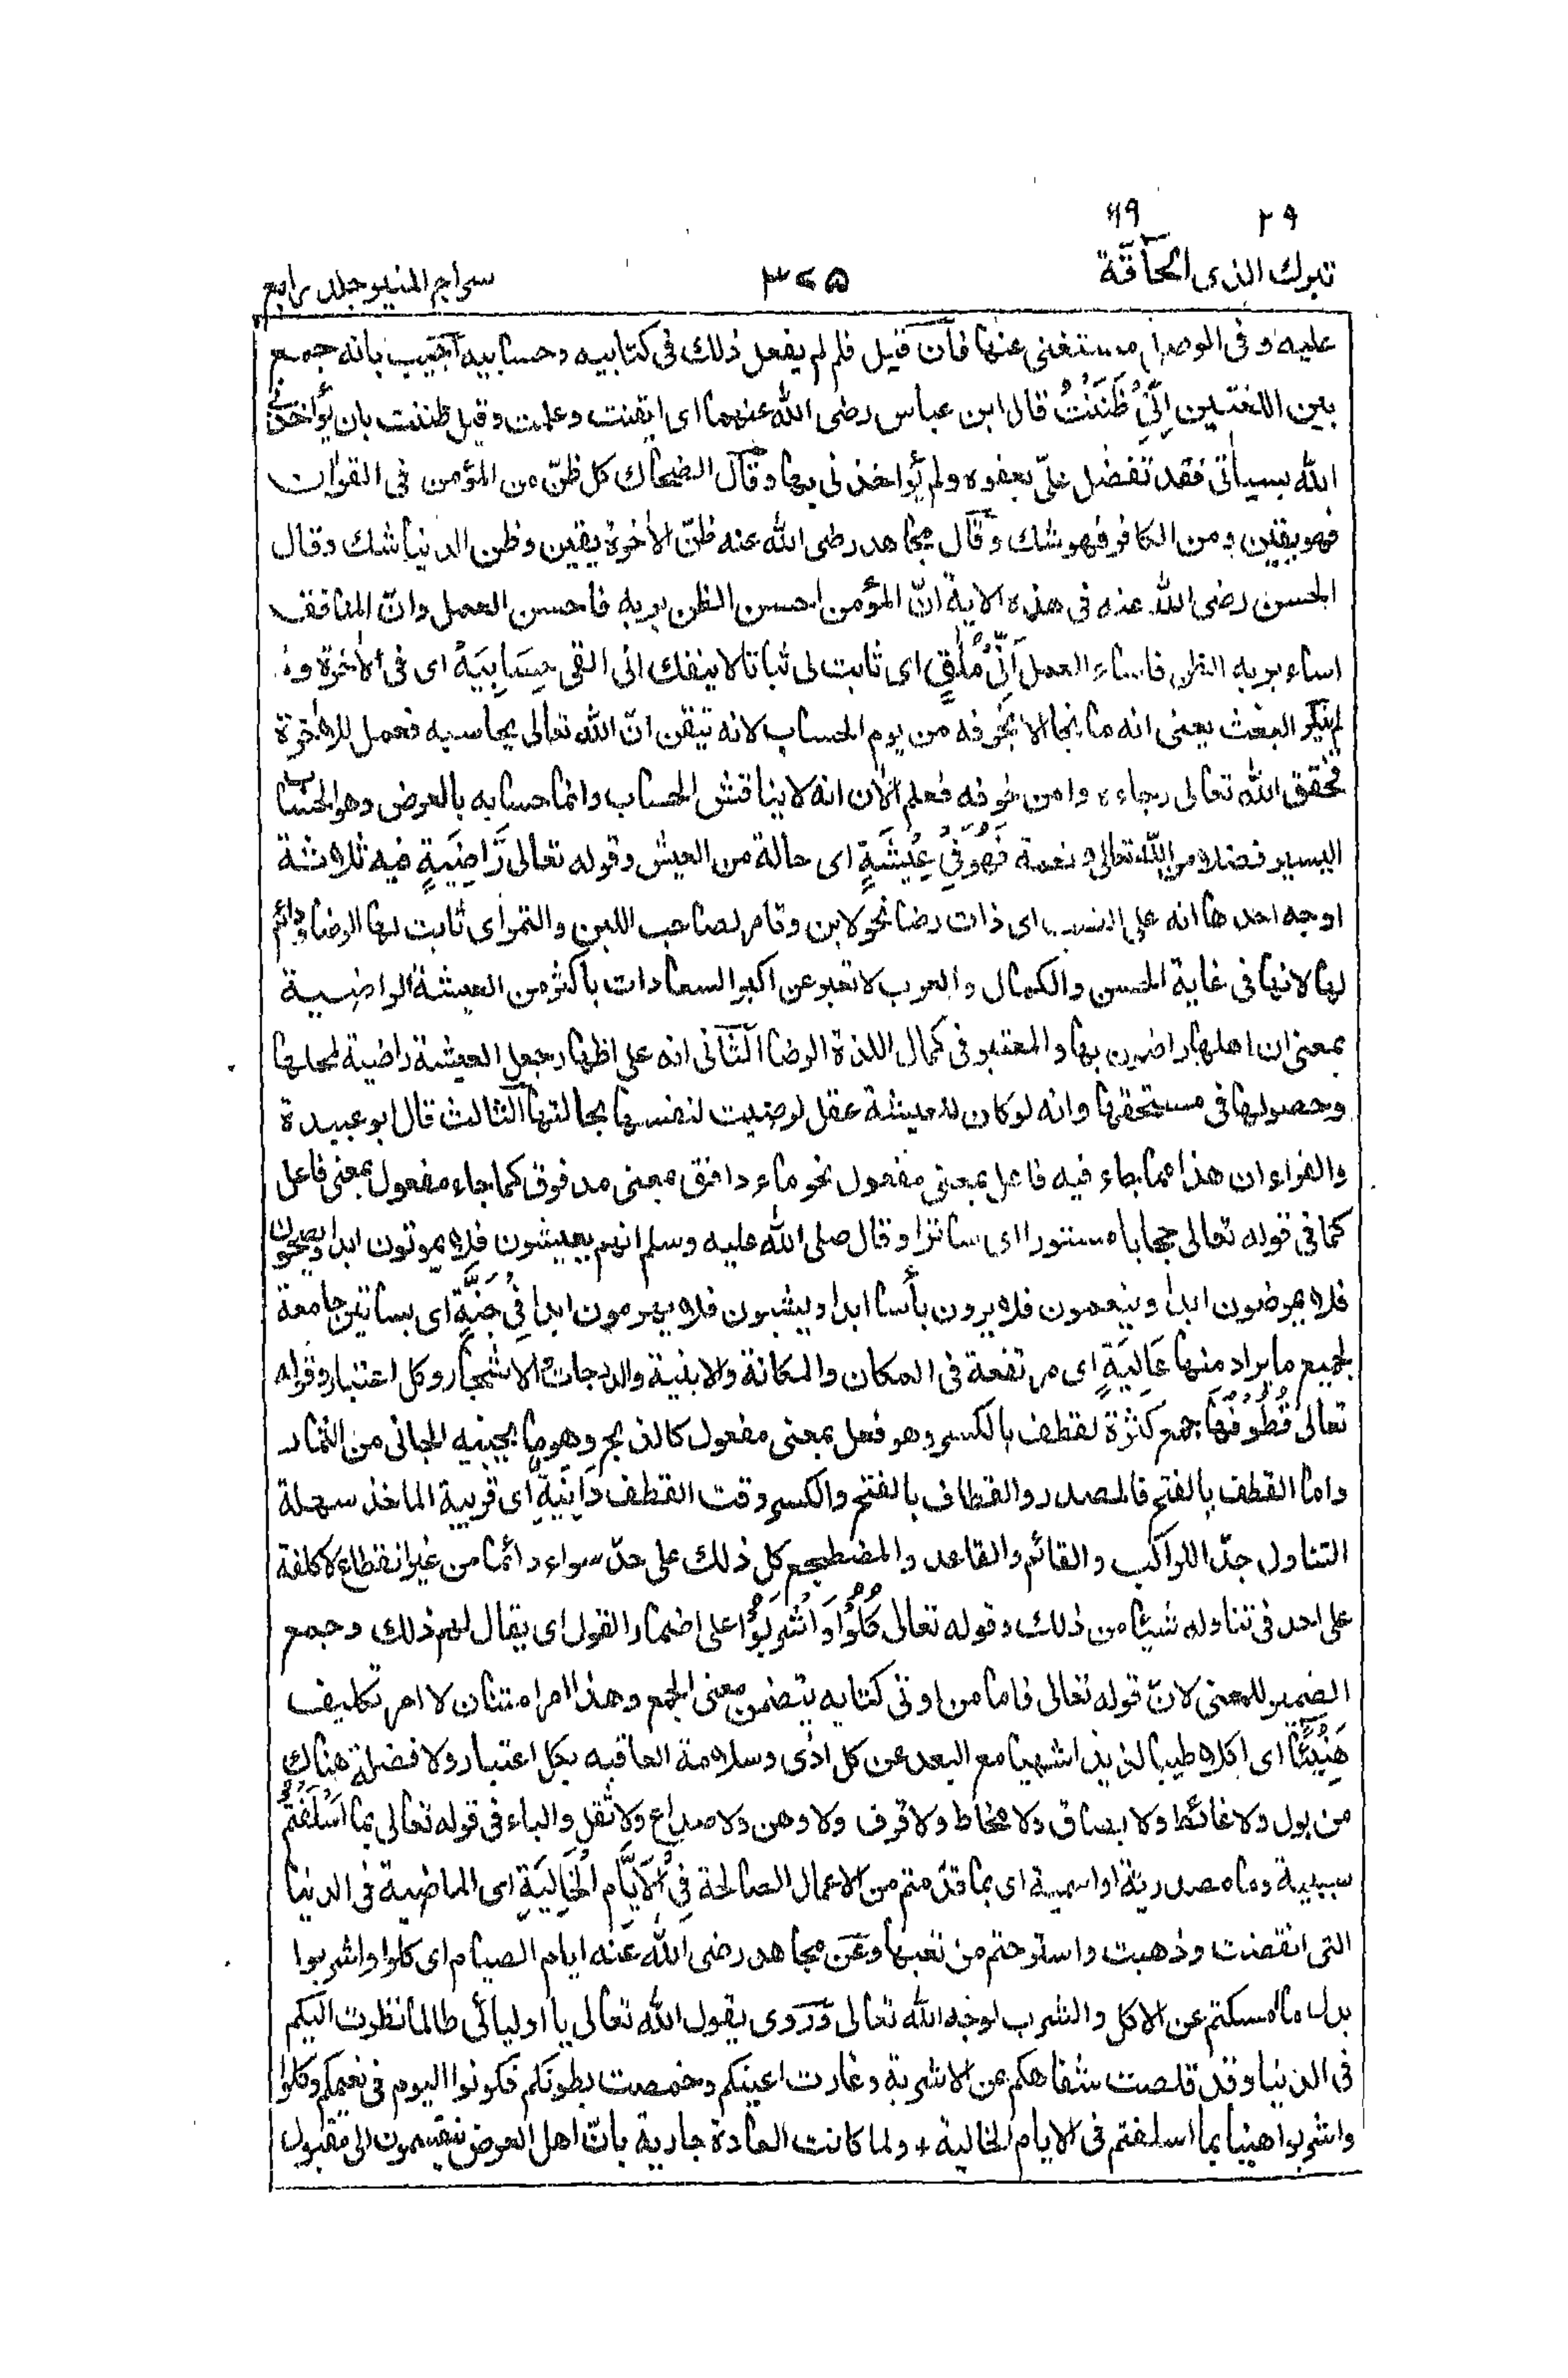 ٢٩ ٦٩
تبرك الذى الحآقّة ٣٤٥ سراج المنير جلد رابع
عليه وفى الوصل مستغنى عنها فان قيل فلم لم يفعل ذلك فى كتابيه وحسابيه اجيب بانه جمع
بين اللغتين اِنِّىْ ظَنَنْتُ قال ابن عباس رضى الله عنهما اى ايقنت وعلمت وقيل ظننت بان يؤاخذنى
الله بسيأتى فقد تفضل علىّ بعفوه ولم يؤاخذنى بها وقال الضحاك كل ظنّ من المؤمن فى القرأن
فهو يقين ومن الكافر فهو شك وقال مجاهد رضى الله عنه ظنّ الأخرة يقين وظن الدنيا شك وقال
الحسن رضى الله عنه فى هذه الاية انّ المؤمن احسن الظن بربه فاحسن العمل وانّ المنافق
اساء بربه الظن فاساء العمل اَنِّىْ مُلٰقٍ اى ثابت لى ثباتا لا ينفك انى القى حِسَابِيَهْ اى فى الأخرة و
لم ينكر البعث يعنى انه ما نجا الا بخوفه من يوم الحساب لانه تيقن انّ الله تعالى يحاسبه فعمل للأخرة
فحقق الله تعالى رجاءه وامن خوفه فعلم الأن انه لا يناقش الحساب وانما حسابه بالعرض وهو الحساب
اليسير فضلا من الله تعالى و نعمة فَهُوَ فِىْ عِيْشَةٍ اى حالة من العيش وقوله تعالى رَّاضِيَةٍ فيه ثلاثة
اوجه احدها انه على النسب اى ذات رضا نحو لابن وتامر لصاحب اللبن والتمر اى ثابت لها الرضا ودائم
لها لانها فى غاية الحسن والكمال والعرب لا تعبر عن اكبر السعادات باكثر من العيشة الراضية
بمعنى ان اهلها راضون بها والمعتبر فى كمال اللذة الرضا الثانى انه على اظهار جعل العيشة راضية لمحلها
وحصولها فى مستحقها وانه لو كان للعيشة عقل لرضيت لنفسها بحالتها الثالث قال ابو عبيدة
والفراء ان هذا مما جاء فيه فاعل بمعنى مفعول نحو ماء دافق بمعنى مدفوق كما جاء مفعول بمعنى فاعل
كما فى قوله تعالى حجابا مستورا اى ساترا وقال صلى الله عليه وسلم انهم يعيشون فلا يموتون ابدا ويصحون
فلا يمرضون ابدا وينعمون فلا يرون بأسا ابدا ويشبون فلا يهرمون ابدا فِىْ جَنَّةٍ اى بساتين جامعة
لجميع ما يراد منها عَالِيَةٍ اى مرتفعة فى المكان والمكانة والابنية والدرجات والاشجار وكل اعتبار وقوله
تعالى قُطُوْفُهَا جمع كثرة لقطف بالكسر وهو فعل بمعنى مفعول كالذبح وهو ما يجنيه الجانى من الثمار
واما القطف بالفتح فالمصدر والقطاف بالفتح والكسر وقت القطف دَانِيَةٌ اى قريبة الماخذ سهلة
التناول جدّا للراكب والقائم والقاعد والمضطجع كل ذلك على حدّ سواء دائما من غير انقطاع لا كلفة
على احد فى تناوله شيئا من ذلك وقوله تعالى كُلُوْا وَاشْرَبُوْا على اضمار القول اى يقال لهم ذلك وجمع
الضمير للمعنى لانّ قوله تعالى فاما من اوتى كتابه يتضمن معنى الجمع وهذا امر امتنان لا امر تكليف
هَنِيْئًۢا اى اكلا طيبا لذيذا شهيا مع البعد عن كل اذى وسلامة العاقبه بكل اعتبار ولا فضلة هناك
من بول ولا غائط ولا بصاق ولا مخاط ولا قرف ولا وهن ولا صداع ولا ثقل والباء فى قوله تعالى بِمَا اَسْلَفْتُمْ
سببية وما مصدريّة او اسمية اى بما قدّمتم من الاعمال الصالحة فِى الْاَيَّامِ الْخَالِيَةِ اى الماضية فى الدنيا
التى انقضت وذهبت واسترحتم من تعبها وعن مجاهد رضى الله عنه ايام الصيام اى كلوا واشربوا
بدل ما امسكتم عن الاكل والشرب لوجه الله تعالى وروى يقول الله تعالى يا اوليائى طالما نظرت اليكم
فى الدنيا وقد قلصت شفاهكم عن الاشربة وغارت اعينكم وخمصت بطونكم فكونوا اليوم فى نعيمكم وكلوا
واشربوا هنيا بما اسلفتم فى الايام الخالية + ولما كانت العادة جارية بانّ اهل العرض ينقسمون الى مقبول